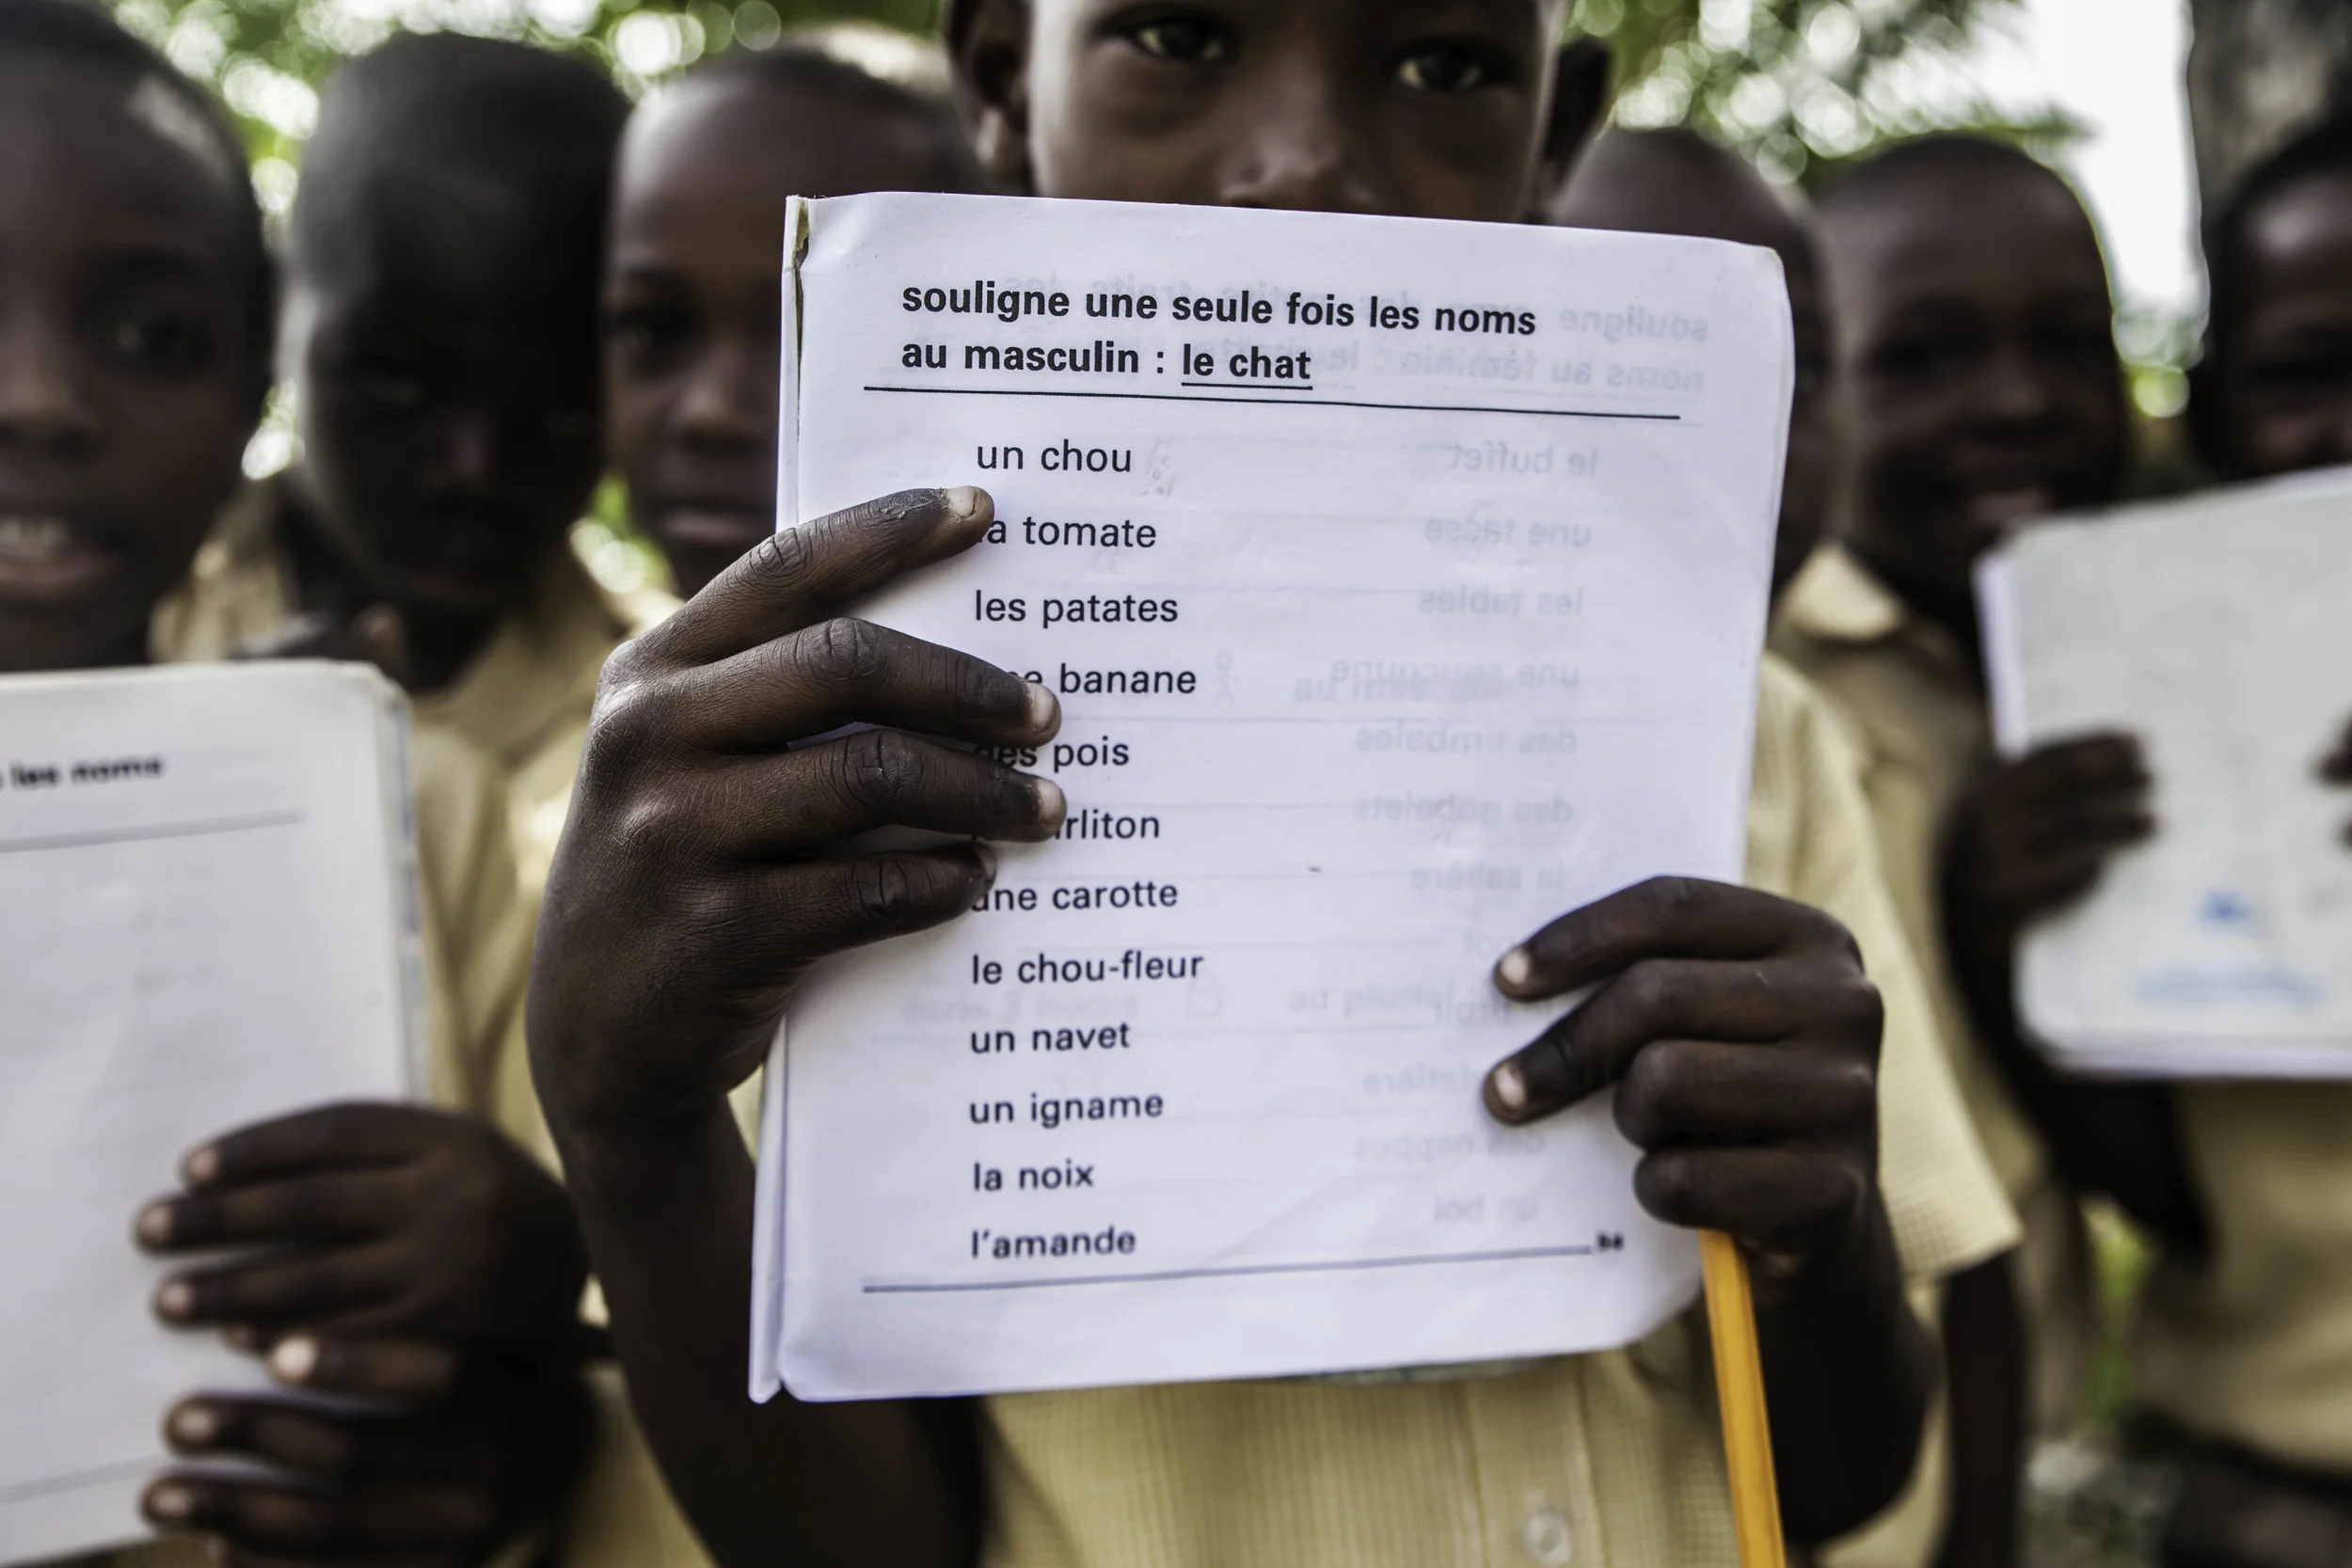 souligne une seule fois les noms
au masculin : le chat
un chou
a tomate
les patates
banane
des pois
rliton
une carotte
le chou-fleur
un navet
un igname
la noix
l'amande
les noms